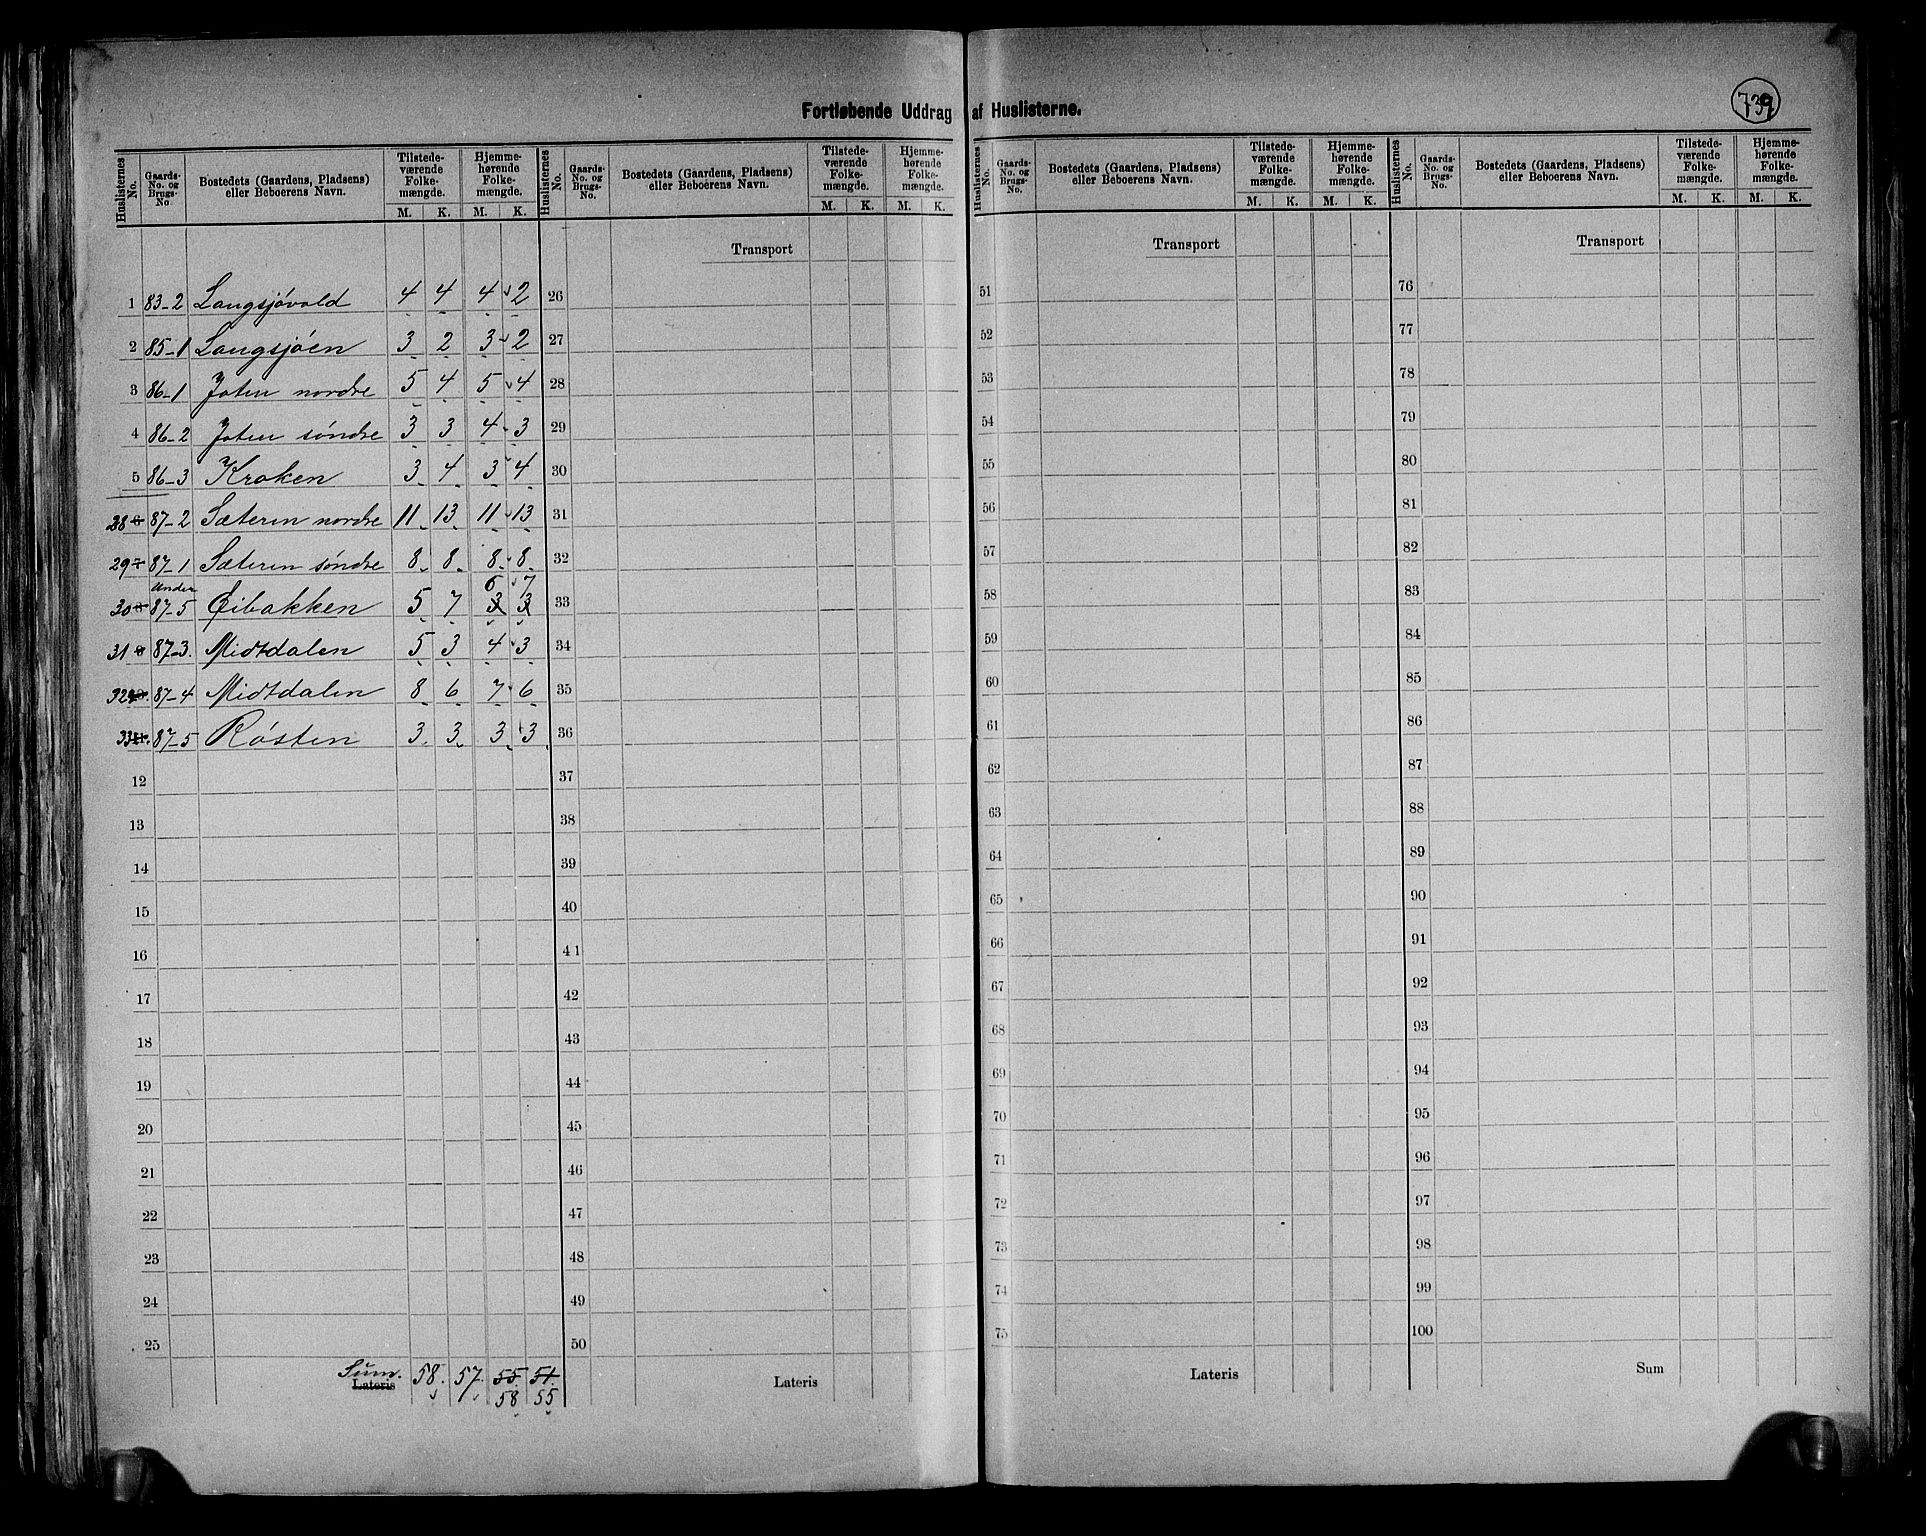 739
Fortløbende Uddrag af Huslisterne.
Huslisternes No. | Gaards-No. og Brugs-No. | Bostedets (Gaardens, Pladsens) eller Beboerens Navn. | Tilstedeværende Folkemængde. M. K. | Hjemmehørende Folkemængde. M. K. | Huslisternes No. | Gaards-No. og Brugs-No. | Bostedets (Gaardens, Pladsens) eller Beboerens Navn. | Tilstedeværende Folkemængde. M. K. | Hjemmehørende Folkemængde. M. K. | Huslisternes No. | Gaards-No. og Brugs-No. | Bostedets (Gaardens, Pladsens) eller Beboerens Navn. | Tilstedeværende Folkemængde. M. K. | Hjemmehørende Folkemængde. M. K. | Huslisternes No. | Gaards-No. og Brugs-No. | Bostedets (Gaardens, Pladsens) eller Beboerens Navn. | Tilstedeværende Folkemængde. M. K. | Hjemmehørende Folkemængde. M. K.
Transport Transport Transport
1 83-2 Langsjøvold 4 4 4 2 26 51 76
2 85-1 Langsjøen 3 2 3 2 27 52 77
3 86-1 Joten nordre 5 4 5 4 28 53 78
4 86-2 Joten søndre 3 3 4 3 29 54 79
5 86-3 Kroken 3 4 3 4 30 55 80
28 87-2 Sæteren nordre 11 13 11 13 31 56 81
29 87-1 Sæteren søndre 8 8 8 8 32 57 82
Under 6 7
30 87-5 Øibakken 5 7 3 3 33 58 83
31 87-3. Midtdalen 5 3 4 3 34 59 84
32 87-4 Midtdalen 8 6 7 6 35 60 85
33 87-5 Røsten 3 3 3 3 36 61 86
12 37 62 87
13 38 63 88
14 39 64 89
15 40 65 90
16 41 66 91
17 42 67 92
18 43 68 93
19 44 69 94
20 45 70 95
21 46 71 96
22 47 72 97
23 48 73 98
24 49 74 99
25 50 75 100
Sum. 58. 57. 55. 51.
Lateris 58 55 Lateris Lateris Sum